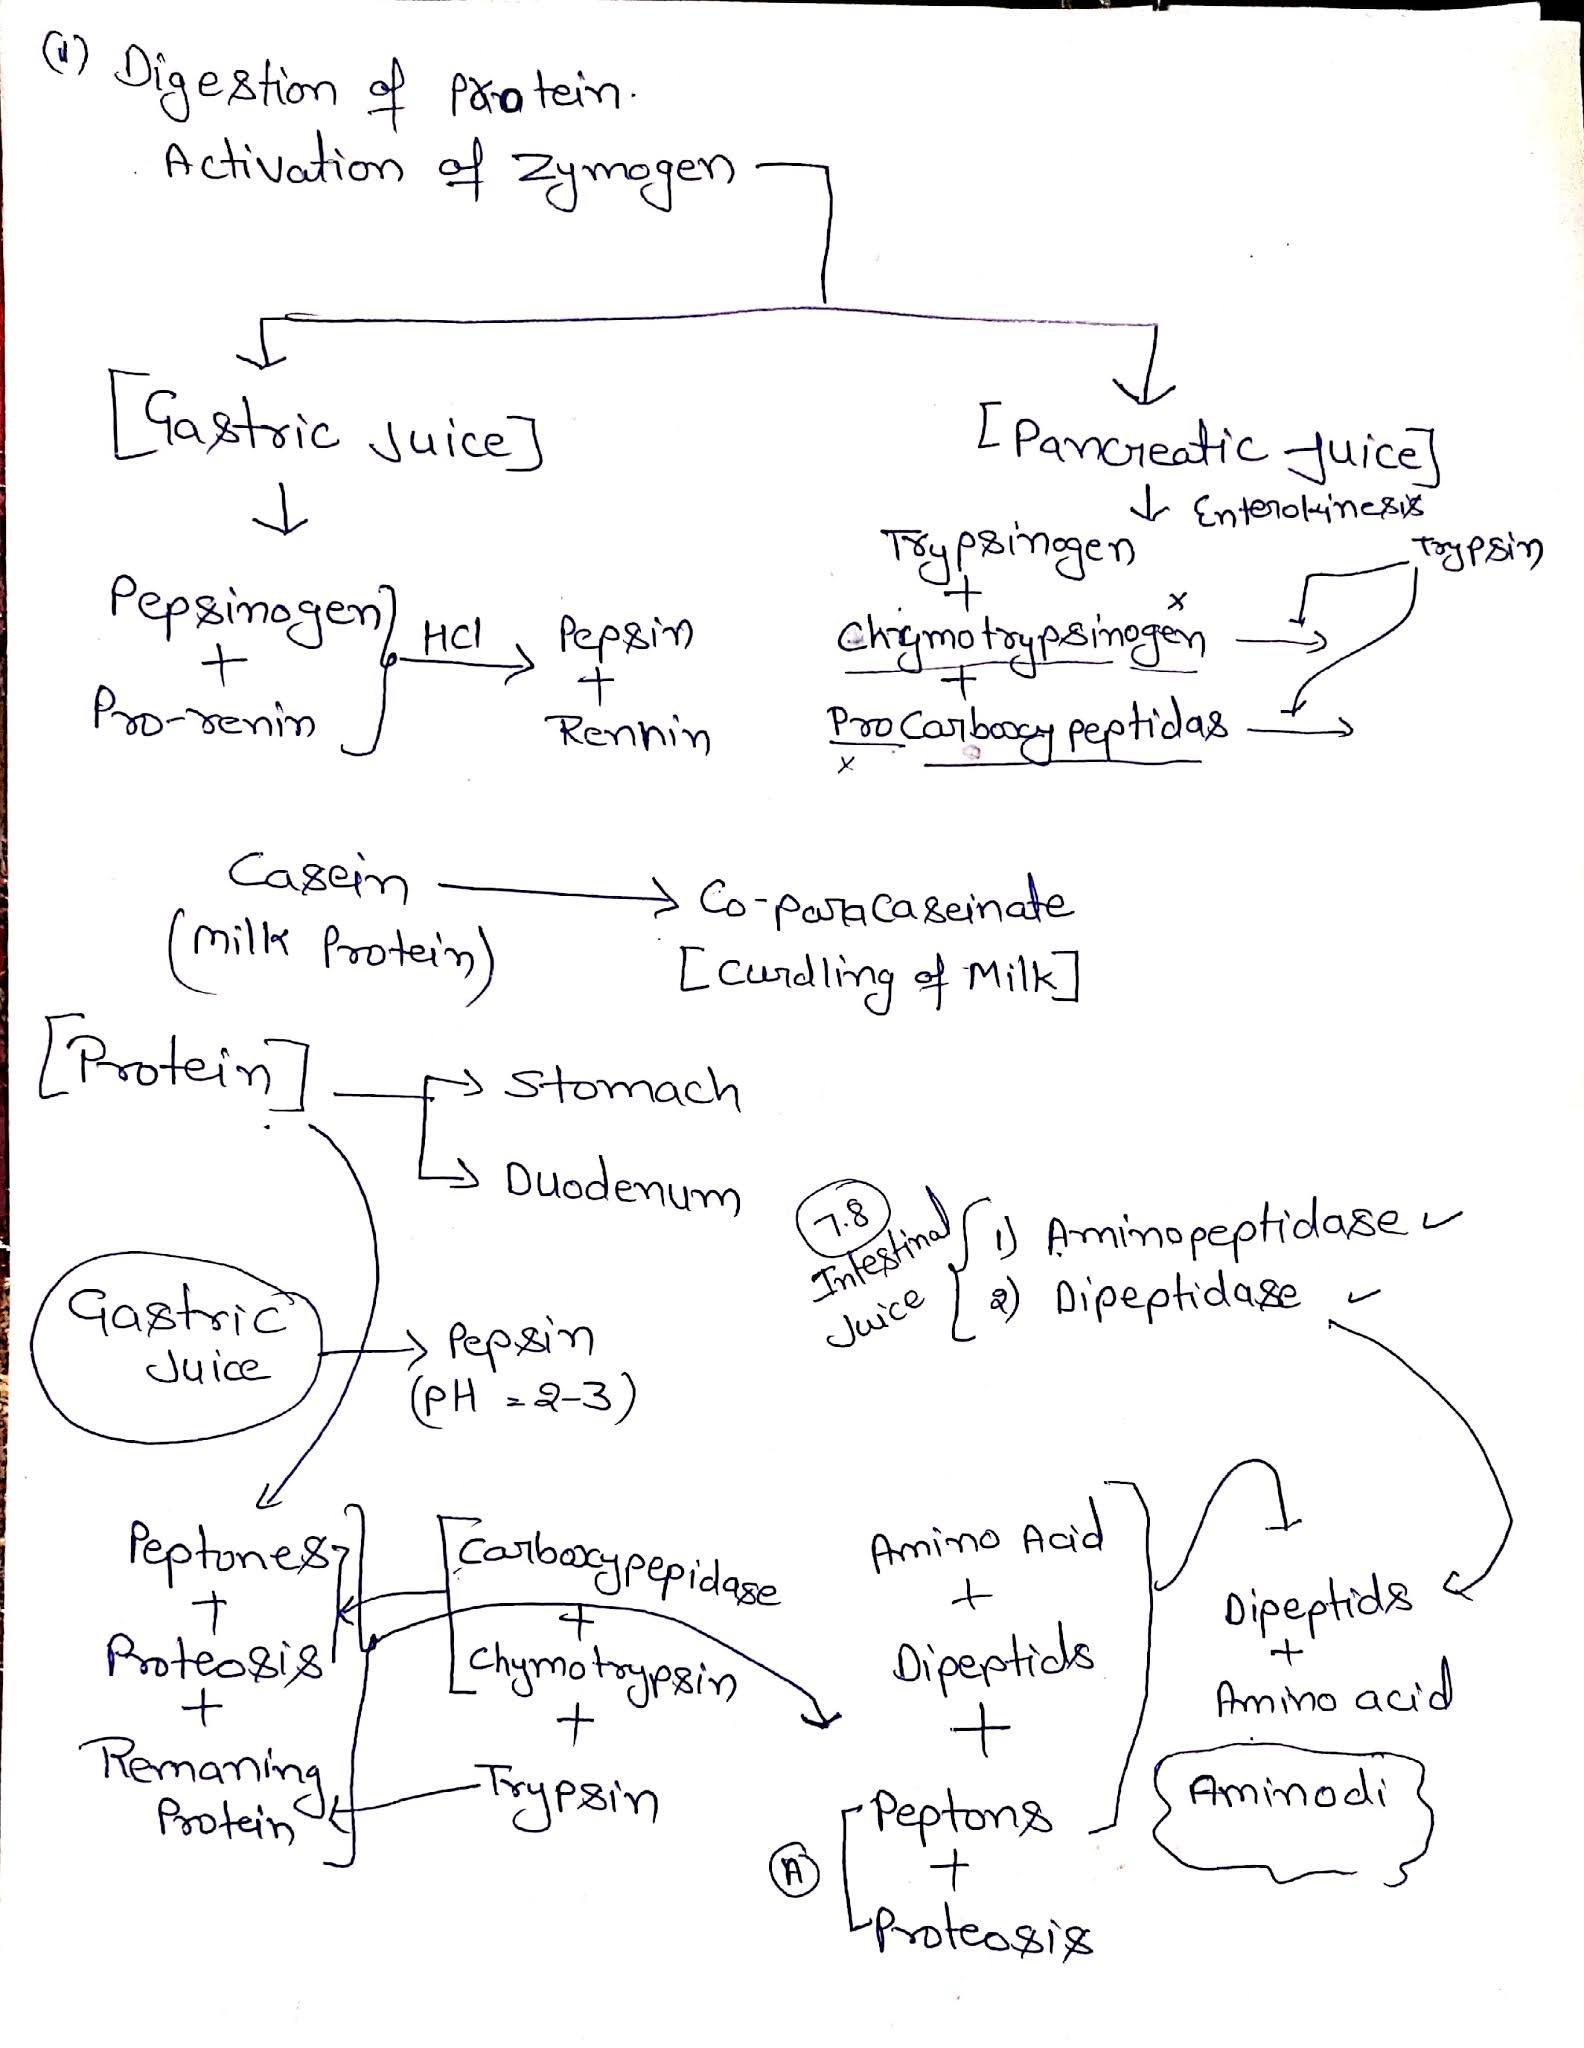 (1) Digestion of Protein.
Activation of Zymogen
[Gastric Juice]
Pepsinogen
+
Pro-renin
HCl
Pepsin
+
Rennin
[Pancreatic Juice]
Enterokinesis
Trypsinogen
+
Chymotrypsinogen
x
+
Pro Carboxy peptidas
x
Trypsin
Casein
(Milk Protein)
Co-paracaseinate
[Curdling of Milk]
[Protein]
Stomach
Duodenum
7.8
Intestinal
Juice
1) Aminopeptidase ✓
2) Dipeptidase ✓
Gastric
Juice
Pepsin
(PH = 2-3)
Peptones
+
Proteosis
+
Remaning
Protein
Carboxypepidase
+
Chymotrypsin
+
Trypsin
Amino Acid
+
Dipeptids
+
Peptons
+
Proteosis
(A)
Dipeptids
+
Amino acid
{Aminodi}